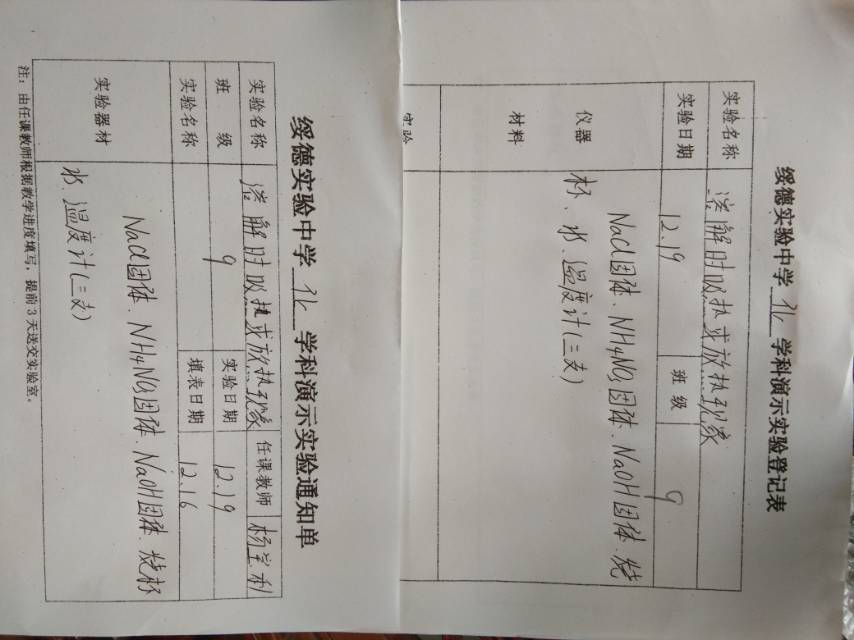 绥德实验中学 化 学科演示实验登记表
实验名称 溶解时吸热或放热现象
实验日期 12.19 班级 9
仪器
材料
NaCl固体、NH4NO3固体、NaOH固体、烧
杯、水、温度计(三支)
实验
绥德实验中学 化 学科演示实验通知单
实验名称 溶解时吸热或放热现象 任课教师
班级 9 实验日期 12.19
实验名称 填表日期 12.16
实验器材
NaCl固体、NH4NO3固体、NaOH固体、烧杯
水、温度计(三支)
注：由任课教师根据教学进度填写，提前3天送交实验室。